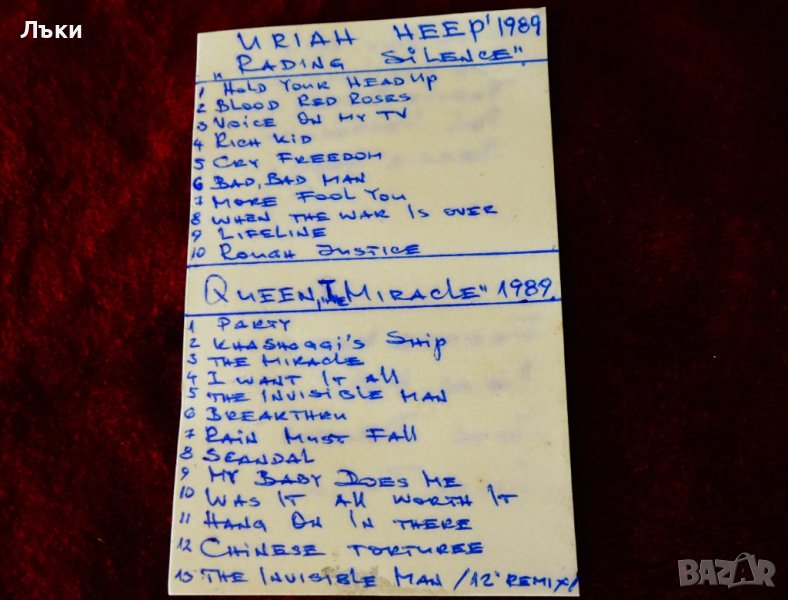 Лъки
URIAH HEEP' 1989
„RADING SILENCE"
1 HOLD YOUR HEAD UP
2 BLOOD RED ROSES
3 VOICE ON MY TV
4 RICH KID
5 CRY FREEDOM
6 BAD, BAD MAN
7 MORE FOOL YOU
8 WHEN THE WAR IS OVER
9 LIFELINE
10 ROUGH JUSTICE
QUEEN, „THE MIRACLE" 1989.
1 PARTY
2 KHASHOGGI'S SHIP
3 THE MIRACLE
4 I WANT IT ALL
5 THE INVISIBLE MAN
6 BREAKTHRU
7 RAIN MUST FALL
8 SCANDAL
9 MY BABY DOES ME
10 WAS IT ALL WORTH IT
11 HANG ON IN THERE
12 CHINESE TORTUREE
13 THE INVISIBLE MAN /12" REMIX/
BAZAR